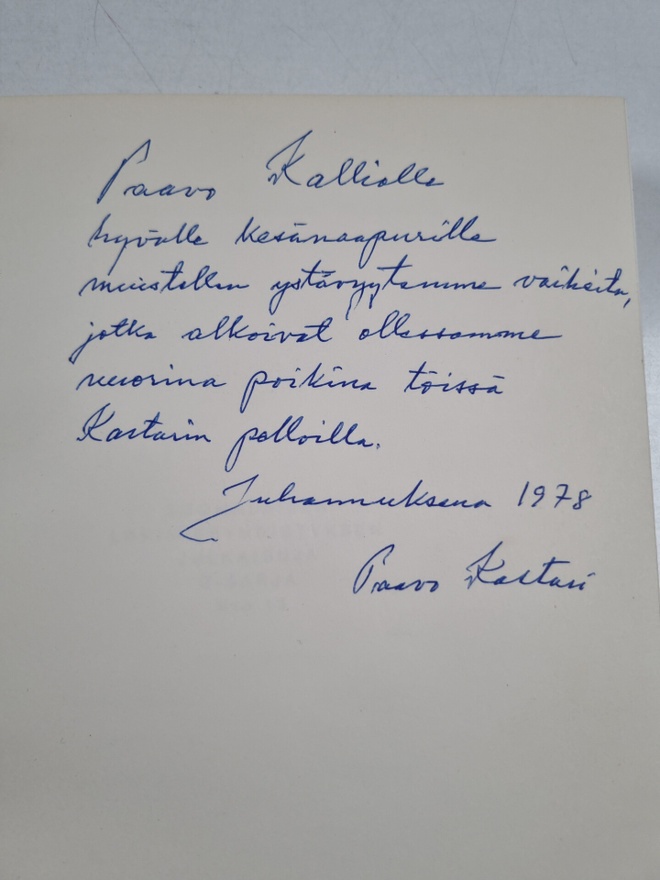 Paavo Kalliolle
hyvälle kesänaapurille
muistellen ystävyytemme vaiheita,
jotka alkoivat ollessamme
nuorina poikina töissä
Kastarin pelloilla.
Juhannuksena 1978
Paavo Kastari